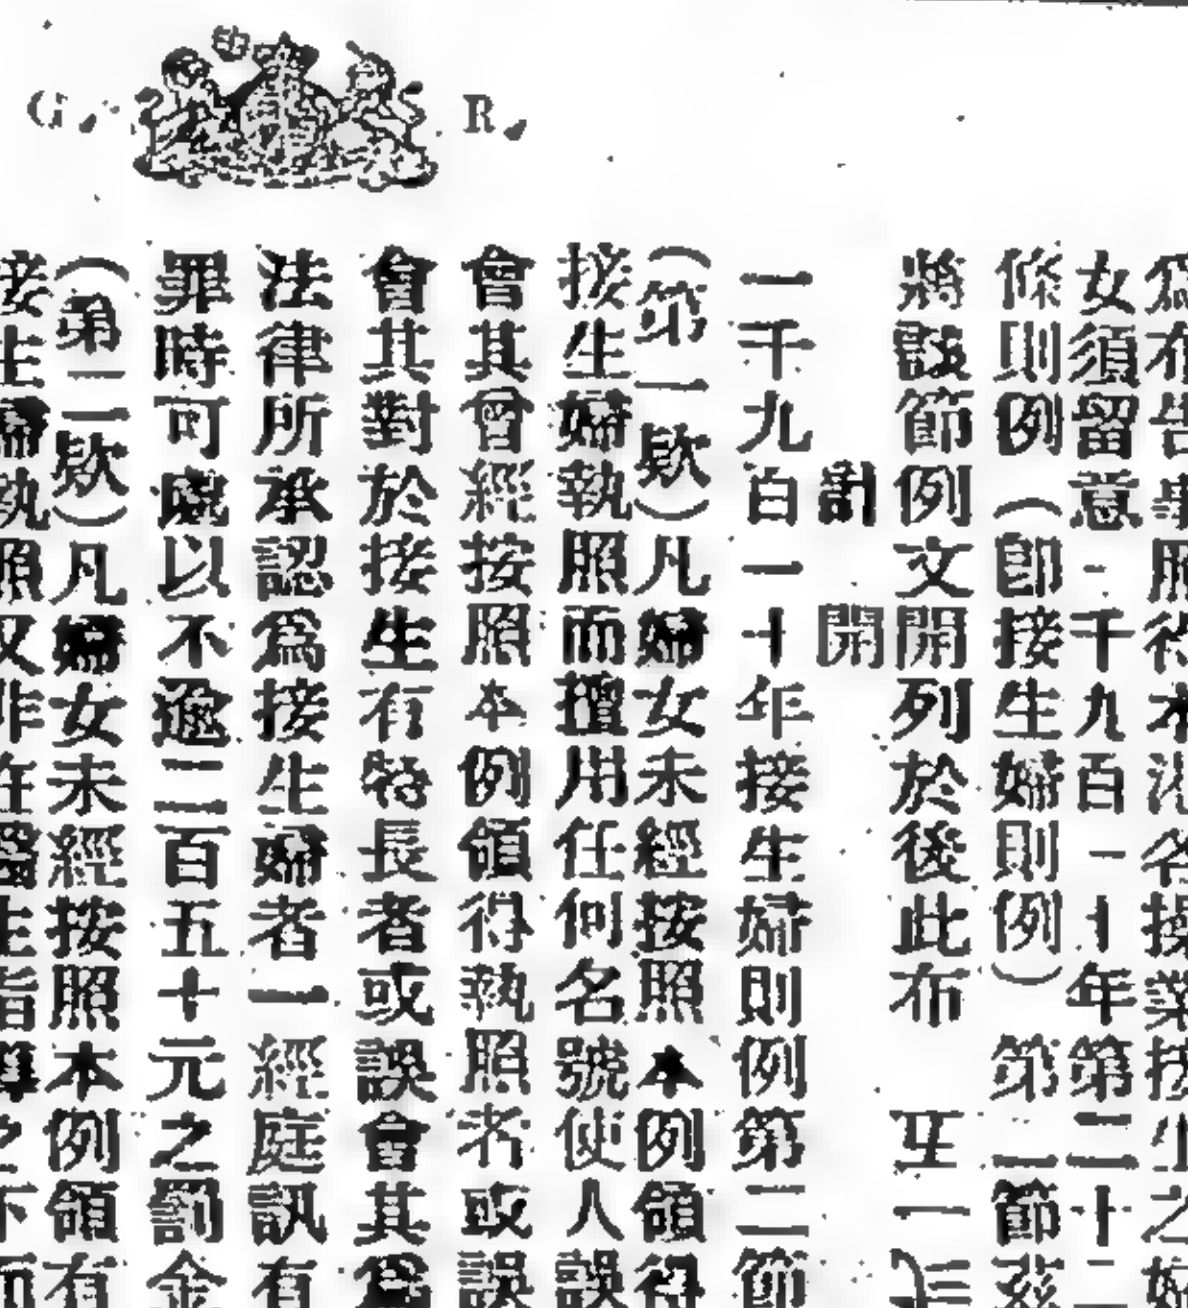 G. R.
爲布告事照得本港名操業接生之婦
女須留意一千九百一十年第二十二
條則例（卽接生婦則例）第二節茲
將該節例文開列於後此布
計開
一千九百一十年接生婦則例第二節
（第一欵）凡婦女未經按照本例領得
接生婦執照而擅用任何名號使人誤
會其曾經按照本例領得執照者或誤
會其對於接生有特長者或誤會其爲
法律所承認爲接生婦者一經庭訊有
罪時可處以不逾二百五十元之罰金
（第二欵）凡婦女未經按照本例領有
接生婦執照又非在醫生指導之下而